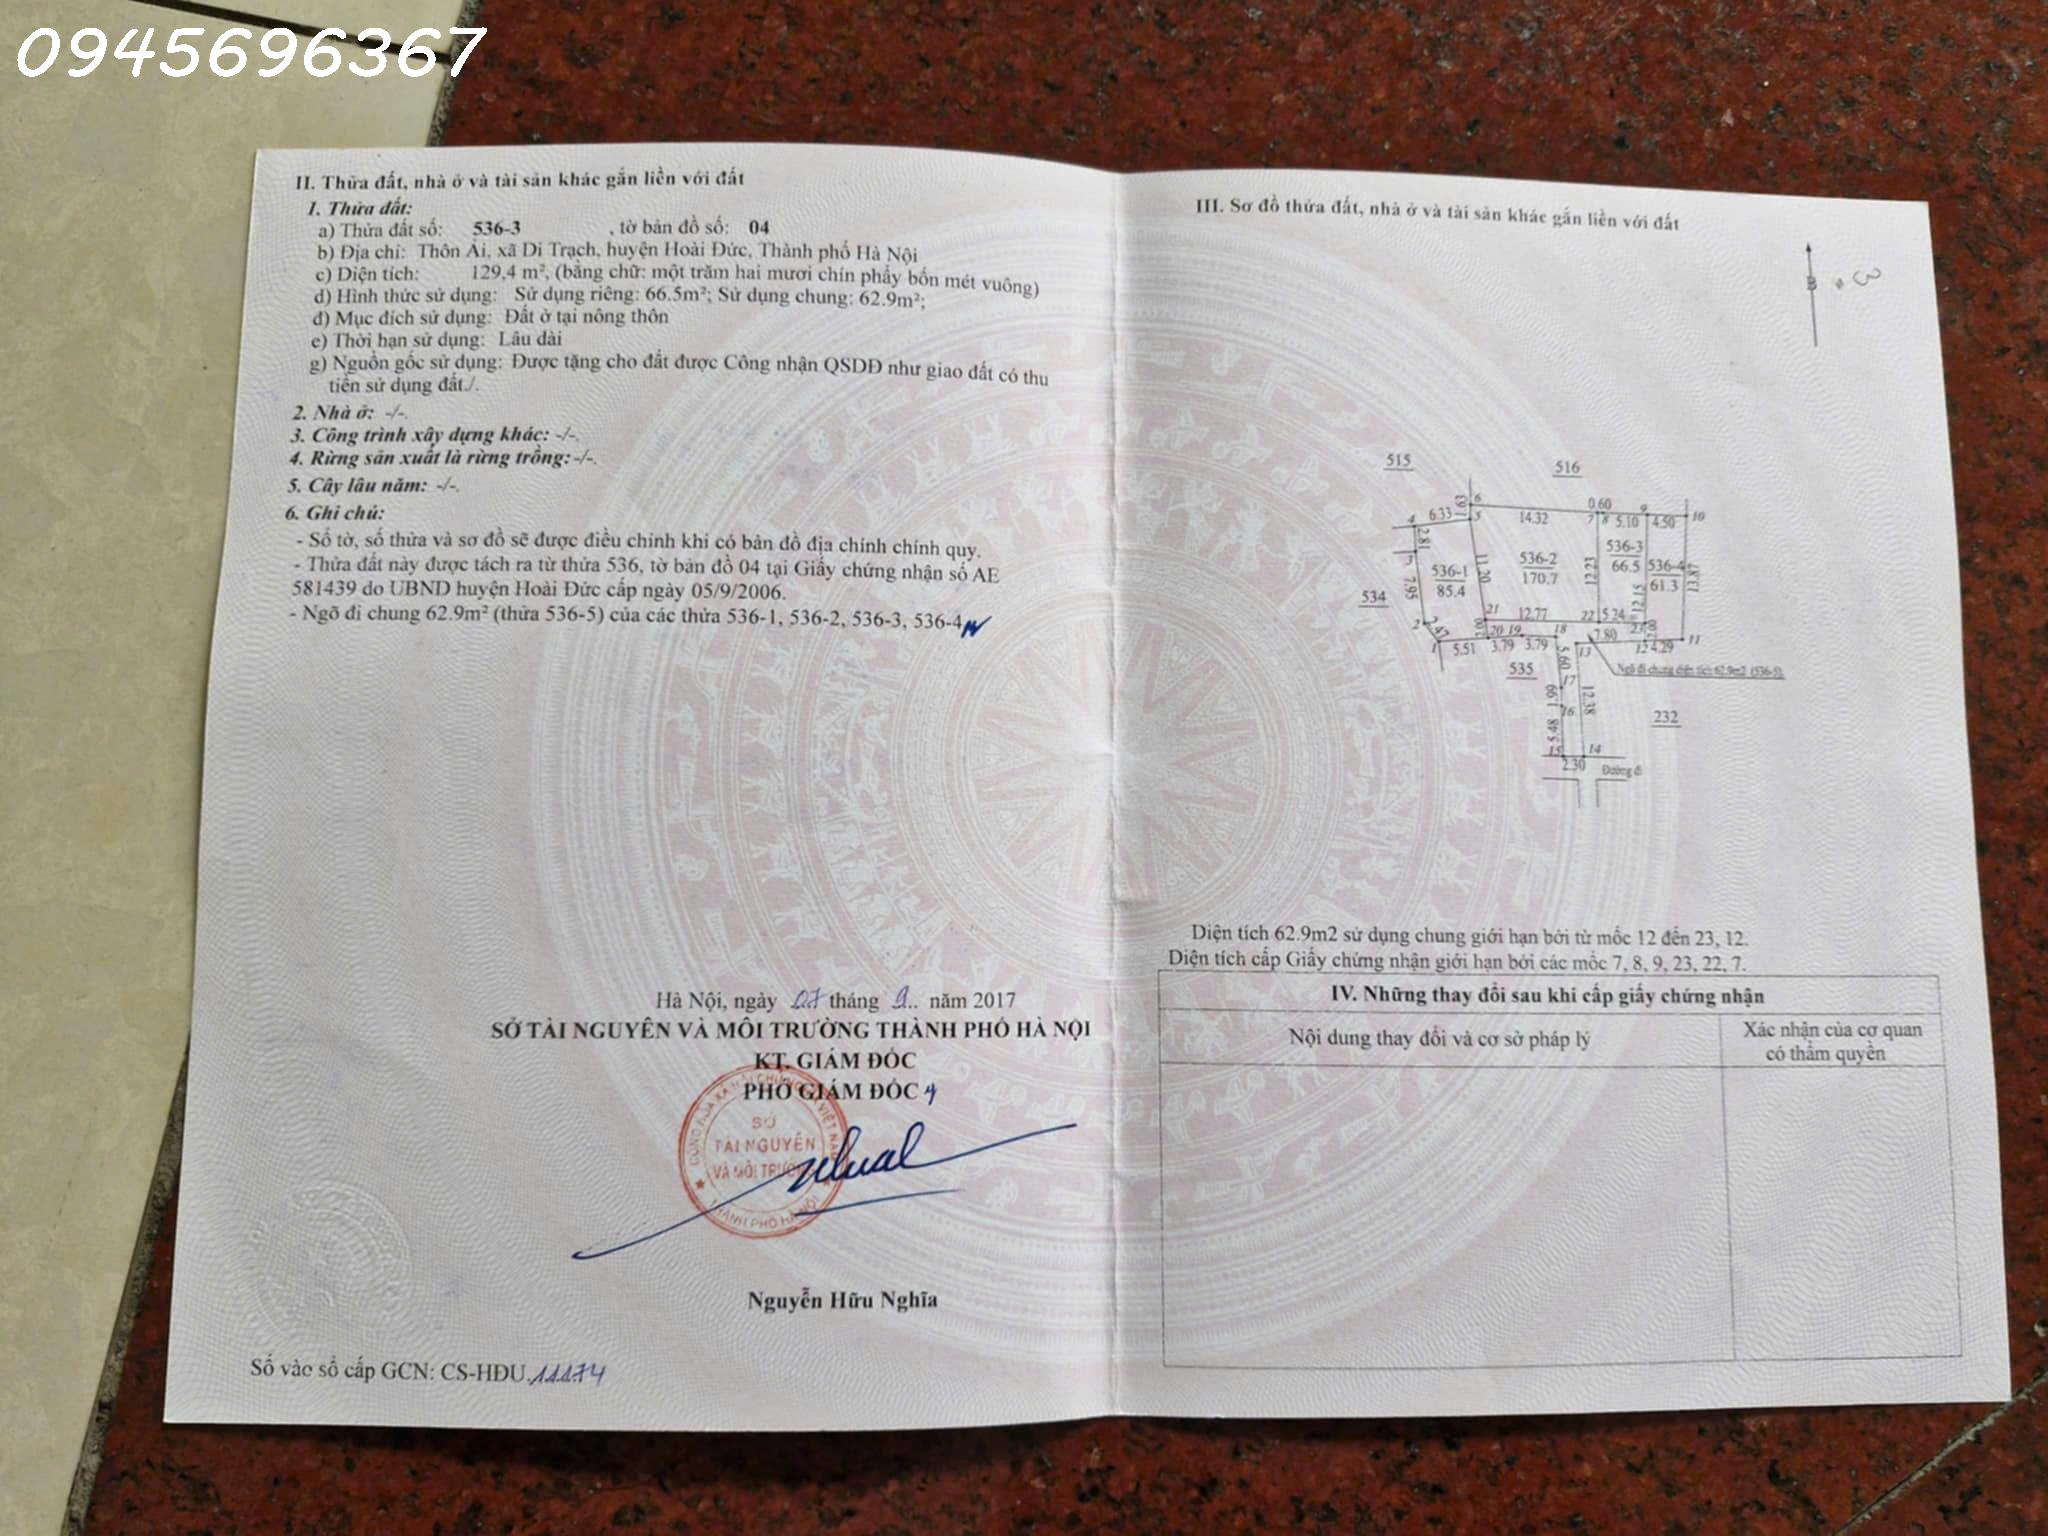 0945696367
II. Thửa đất, nhà ở và tài sản khác gắn liền với đất
1. Thửa đất:
a) Thửa đất số: 536-3 , tờ bản đồ số: 04
b) Địa chỉ: Thôn Ải, xã Di Trạch, huyện Hoài Đức, Thành phố Hà Nội
c) Diện tích: 129,4 m², (bằng chữ: một trăm hai mươi chín phẩy bốn mét vuông)
d) Hình thức sử dụng: Sử dụng riêng: 66.5m²; Sử dụng chung: 62.9m²;
đ) Mục đích sử dụng: Đất ở tại nông thôn
e) Thời hạn sử dụng: Lâu dài
g) Nguồn gốc sử dụng: Được tặng cho đất được Công nhận QSDĐ như giao đất có thu
tiền sử dụng đất./.
2. Nhà ở: -/-.
3. Công trình xây dựng khác: -/-.
4. Rừng sản xuất là rừng trồng: -/-.
5. Cây lâu năm: -/-.
6. Ghi chú:
- Số tờ, số thửa và sơ đồ sẽ được điều chỉnh khi có bản đồ địa chính chính quy.
- Thửa đất này được tách ra từ thửa 536, tờ bản đồ 04 tại Giấy chứng nhận số AE
581439 do UBND huyện Hoài Đức cấp ngày 05/9/2006.
- Ngõ đi chung 62.9m² (thửa 536-5) của các thửa 536-1, 536-2, 536-3, 536-4
Hà Nội, ngày 07 tháng 9.. năm 2017
SỞ TÀI NGUYÊN VÀ MÔI TRƯỜNG THÀNH PHỐ HÀ NỘI
KT. GIÁM ĐỐC
PHÓ GIÁM ĐỐC
SỞ
TÀI NGUYÊN
VÀ MÔI TRƯỜNG
THÀNH PHỐ HÀ NỘI
Nguyễn Hữu Nghĩa
Số vào sổ cấp GCN: CS-HĐU.11174
III. Sơ đồ thửa đất, nhà ở và tài sản khác gắn liền với đất
B
3
515
516
6
1.93
0.60
4 6.33 5 14.32 7 8 5.10 9 4.50 10
2.81
3
7.95
11.20
536-1
85.4
536-2
170.7
12.23
536-3
66.5
12.15
536-4
61.3
13.87
534
2
2.47
21 12.77 22 5.24 23
2.00
1 5.51 20 3.79 19 3.79 18 13 7.80 12 4.29 11
2.00
535
5.60
Ngõ đi chung diện tích 62.9m2 (536-5)
17
1.99
12.38
16
232
5.48
15 14
2.30
Đường đi
Diện tích 62.9m2 sử dụng chung giới hạn bởi từ mốc 12 đến 23, 12.
Diện tích cấp Giấy chứng nhận giới hạn bởi các mốc 7, 8, 9, 23, 22, 7.
IV. Những thay đổi sau khi cấp giấy chứng nhận
Nội dung thay đổi và cơ sở pháp lý
Xác nhận của cơ quan
có thẩm quyền